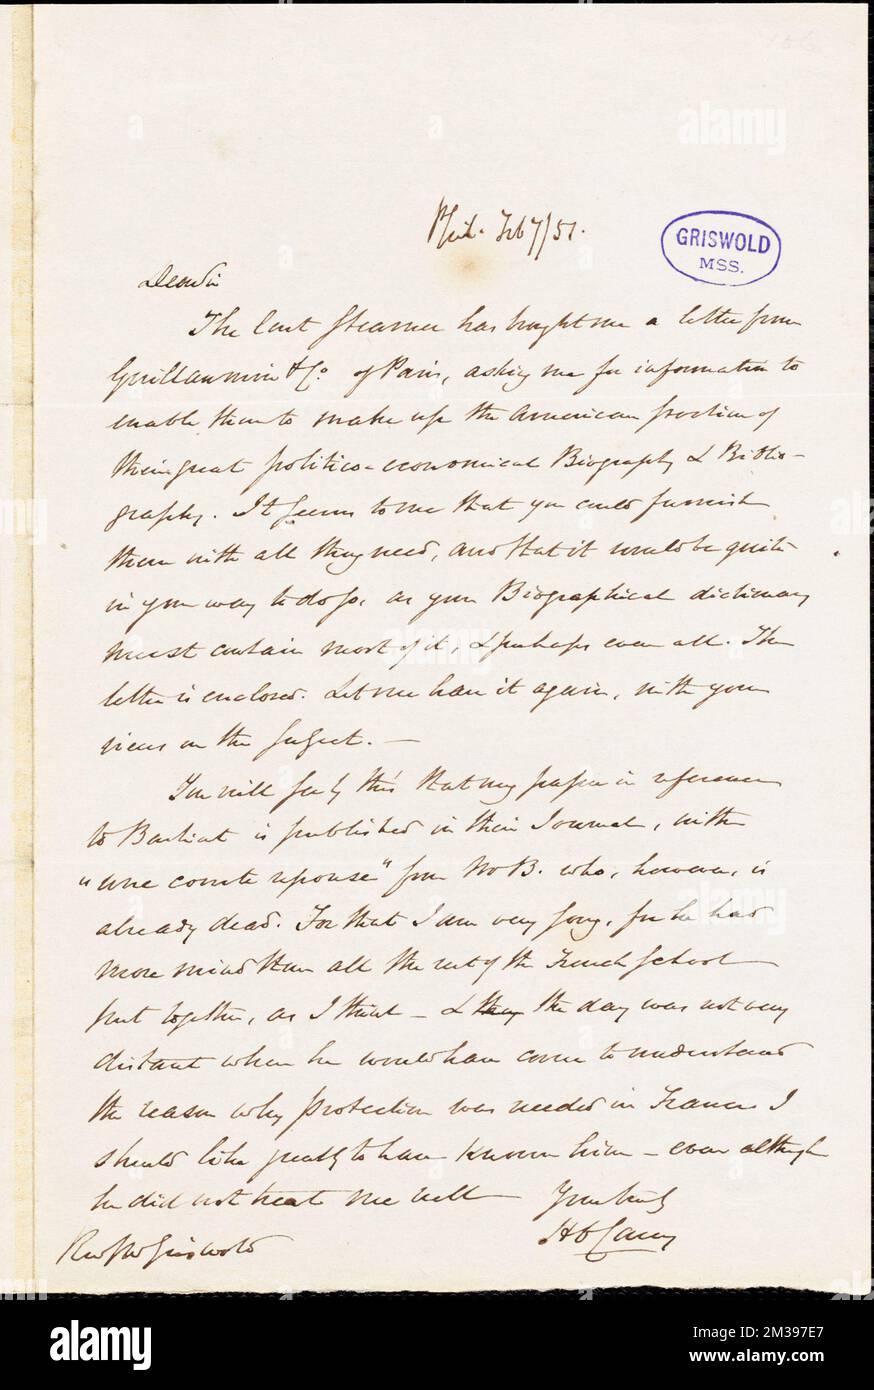 Phil. Feb 7/51.
GRISWOLD
MSS.
Dear Sir
The last steamer has brought me a letter from
Guillaumin & Co. of Paris, asking me for information to
enable them to make up the American portion of
their great politico-economical Biography & Biblio-
graphy. It seems to me that you could furnish
them with all they need, and that it would be quite
in your way to do so, as your Biographical dictionary
must contain most of it, & perhaps even all. The
letter is enclosed. Let me have it again, with your
views on the subject. —
You will see by this that my paper in reference
to Bastiat is published in their Journal, with
"une courte reponse" from Mr B. who, however, is
already dead. For that I am very sorry, for he had
more mind than all the rest of the French School
put together, as I think — & the day was not very
distant when he would have come to understand
the reason why protection was needed in France I
should like greatly to have known him — even although
he did not treat me well
Yours truly
H C Carey
Rev R W Griswold
alamy
Image ID: 2M397E7
www.alamy.com